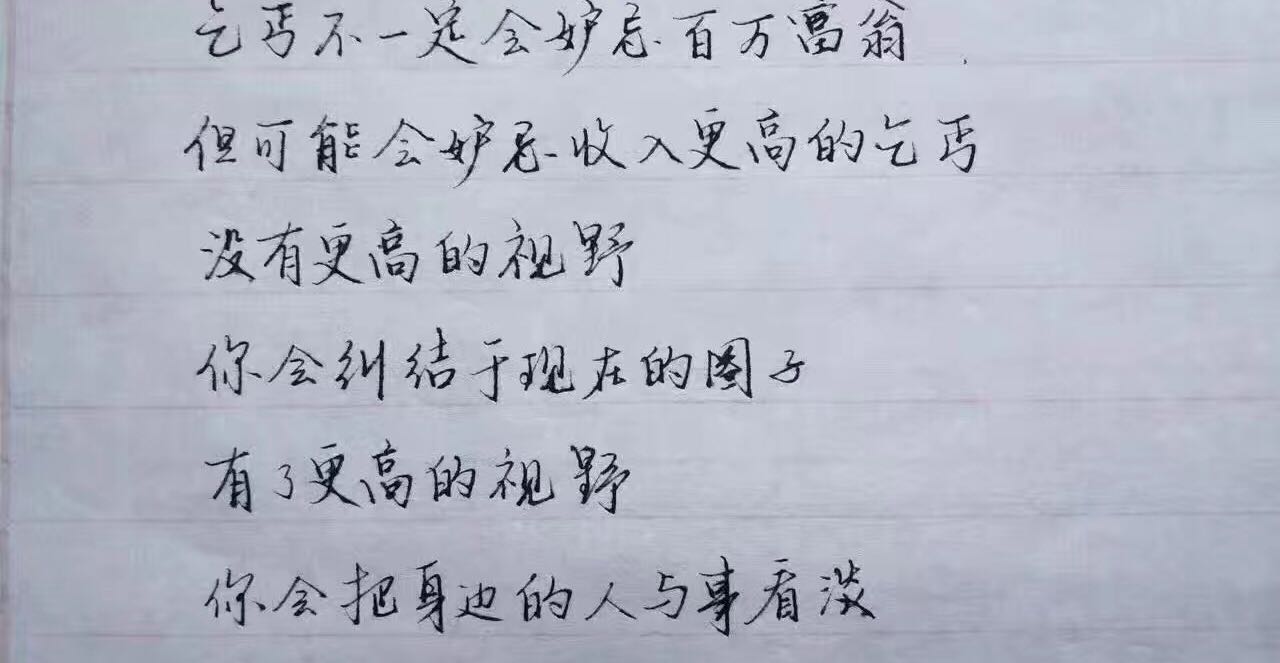 乞丐不一定会妒忌百万富翁
但可能会妒忌收入更高的乞丐
没有更高的视野
你会纠结于现在的圈子
有了更高的视野
你会把身边的人与事看淡